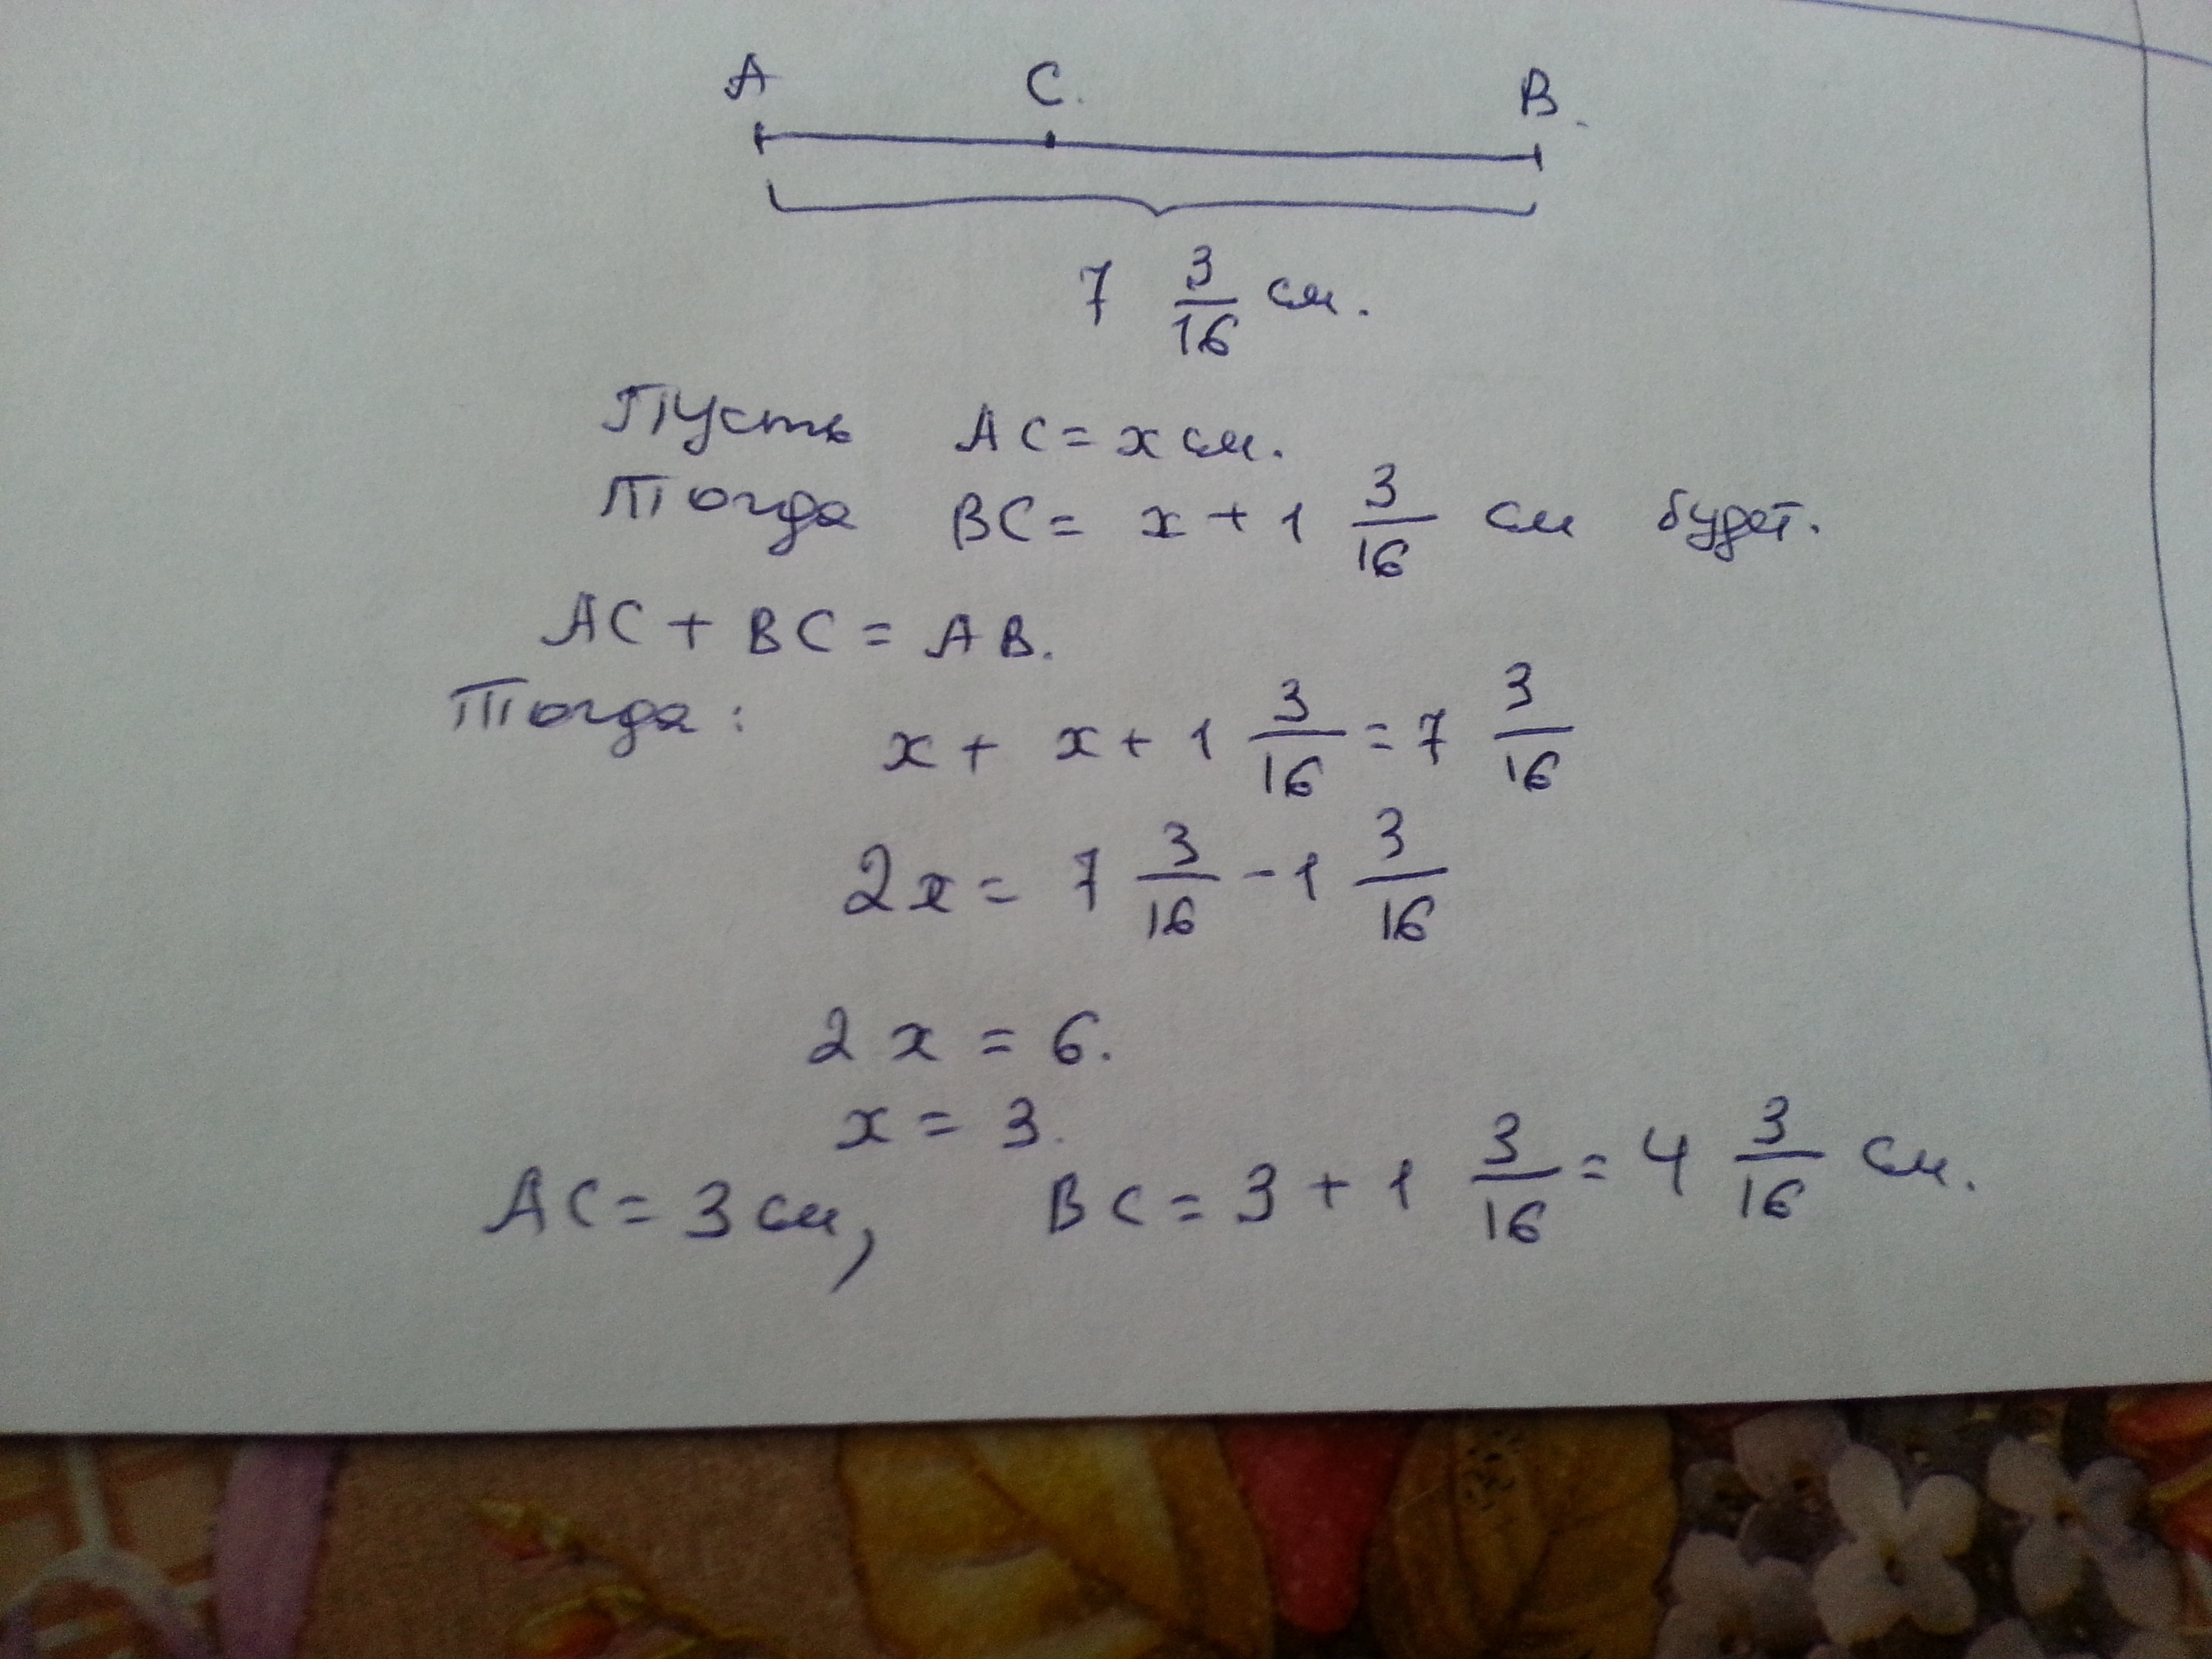 A C. B.
7 3/16 см.
Пусть AC = x см.
Тогда BC = x + 1 3/16 см будет.
AC + BC = AB.
Тогда: x + x + 1 3/16 = 7 3/16
2x = 7 3/16 - 1 3/16
2x = 6.
x = 3.
AC = 3 см, BC = 3 + 1 3/16 = 4 3/16 см.